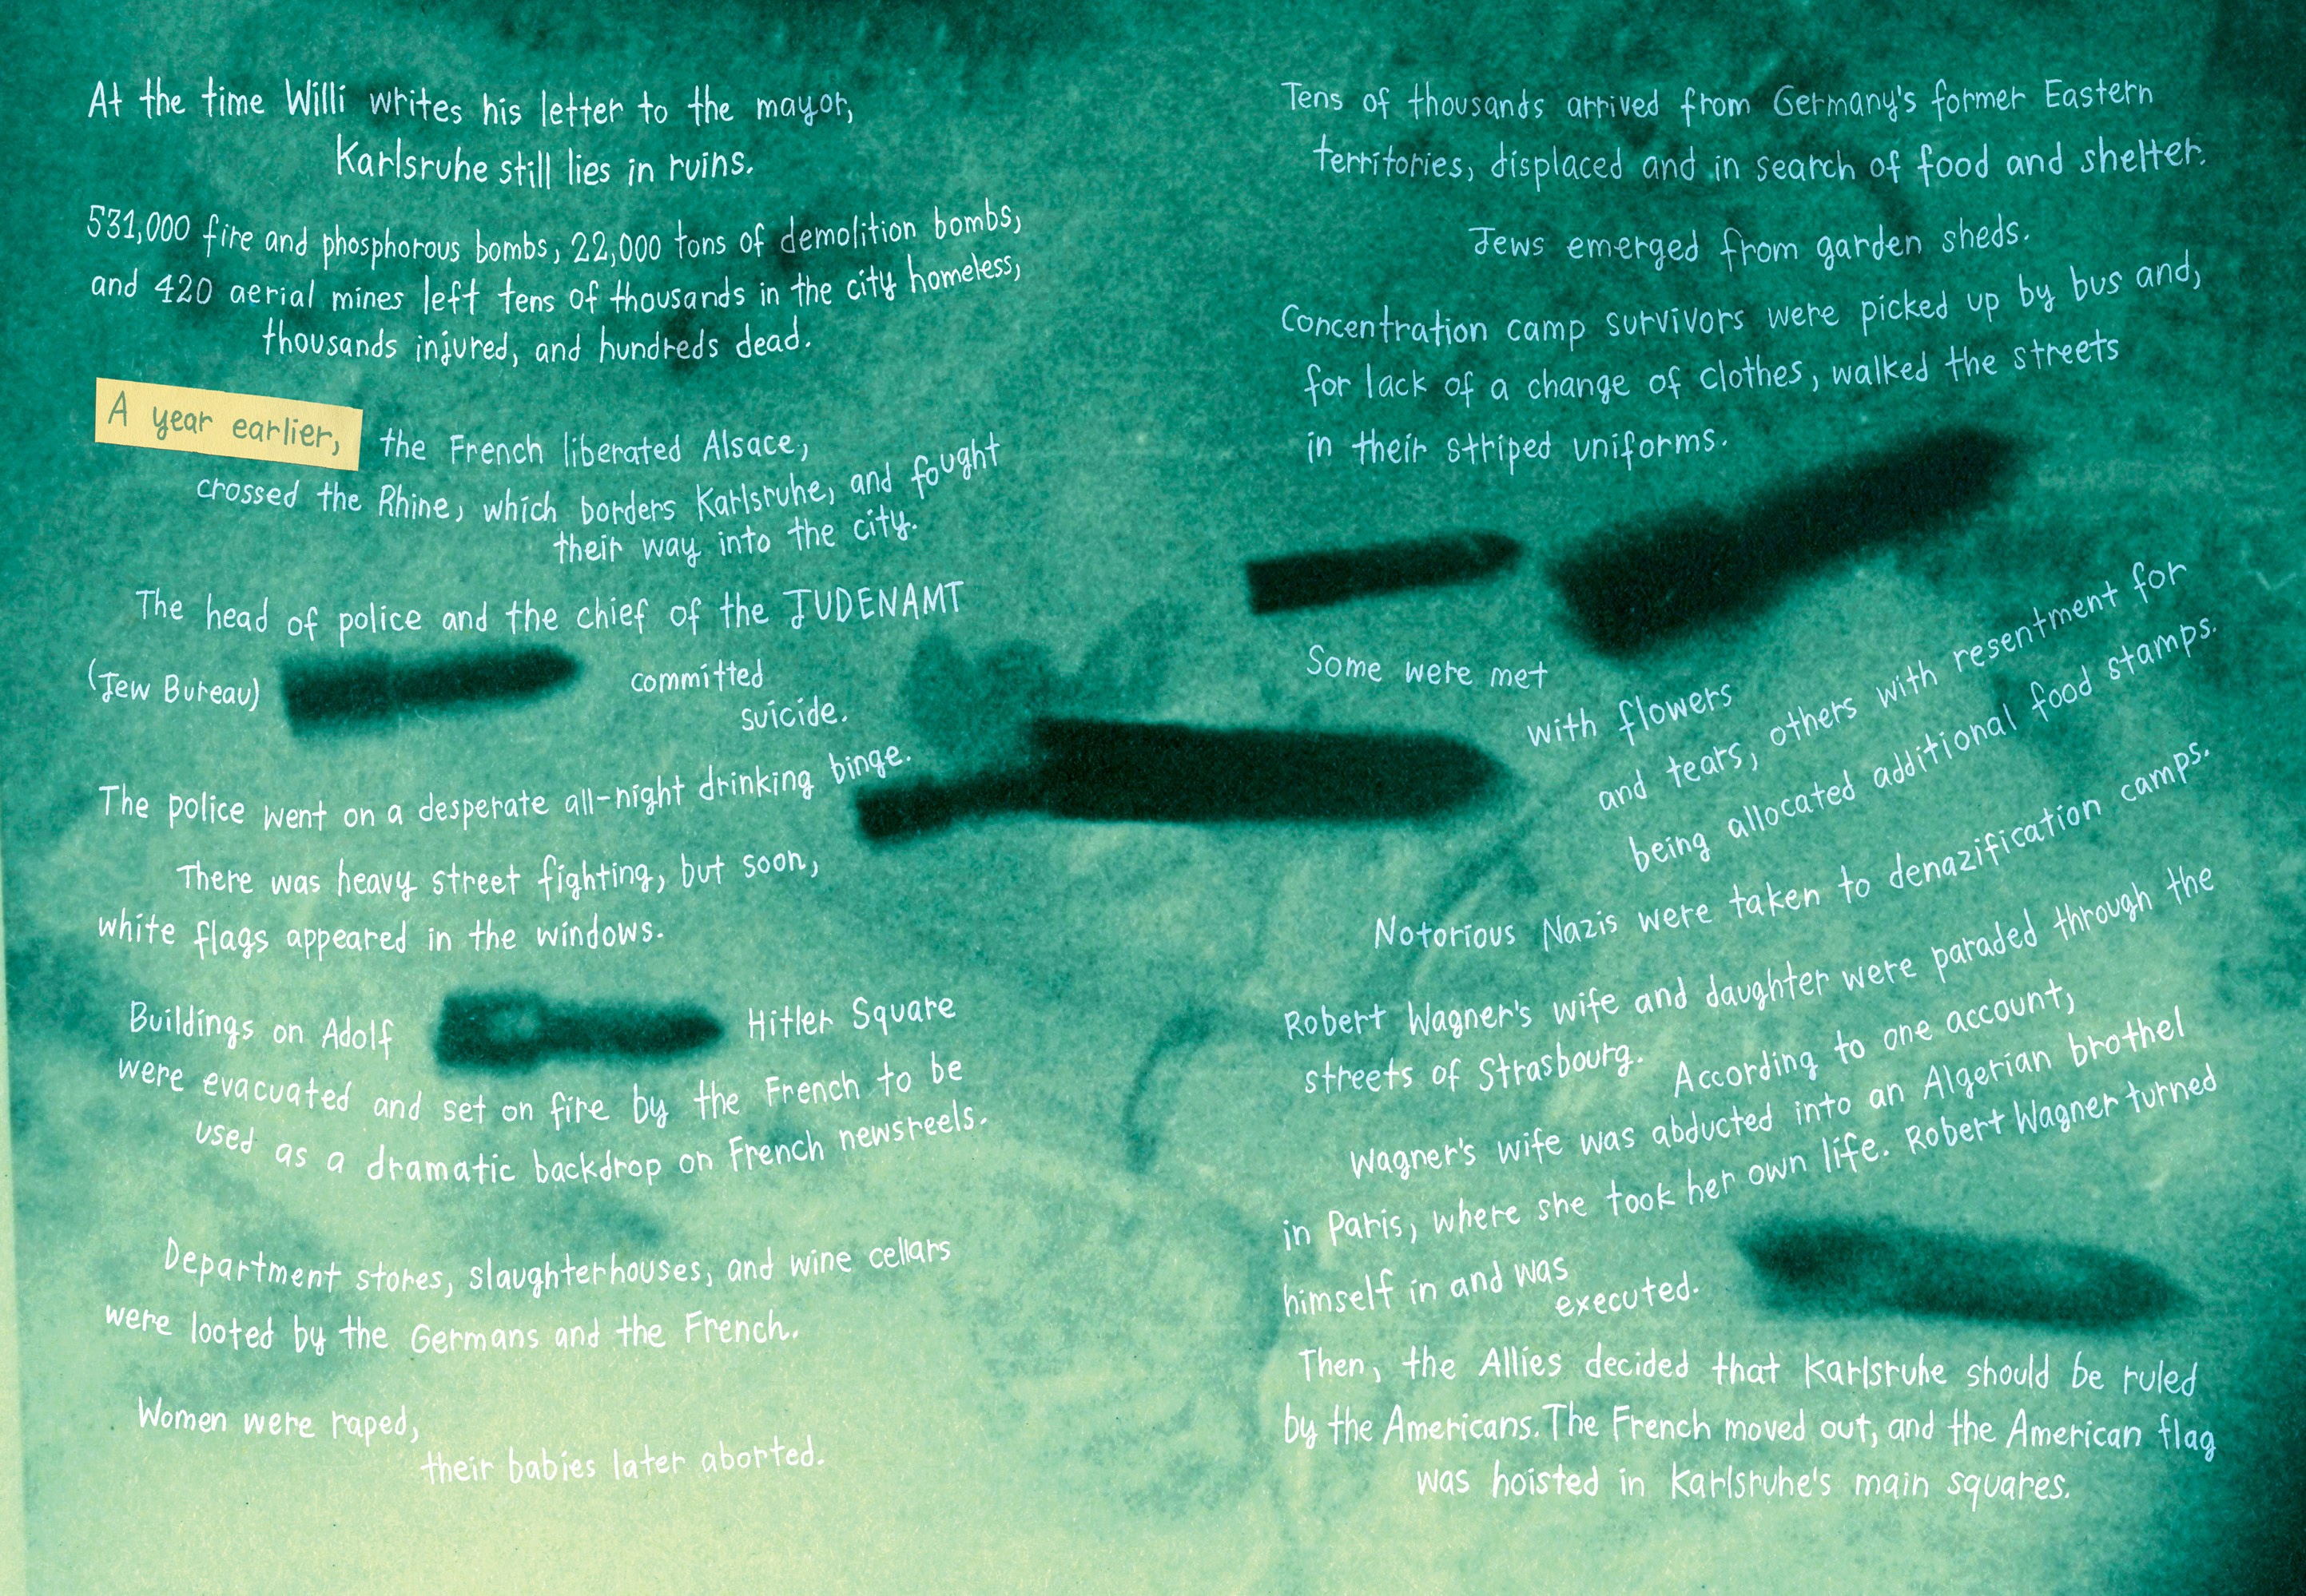 At the time Willi writes his letter to the mayor,
Karlsruhe still lies in ruins.
531,000 fire and phosphorous bombs, 22,000 tons of demolition bombs,
and 420 aerial mines left tens of thousands in the city homeless,
thousands injured, and hundreds dead.
A year earlier, the French liberated Alsace,
crossed the Rhine, which borders Karlsruhe, and fought
their way into the city.
The head of police and the chief of the JUDENAMT
(Jew Bureau) committed
suicide.
The police went on a desperate all-night drinking binge.
There was heavy street fighting, but soon,
white flags appeared in the windows.
Buildings on Adolf Hitler Square
were evacuated and set on fire by the French to be
used as a dramatic backdrop on French newsreels.
Department stores, slaughterhouses, and wine cellars
were looted by the Germans and the French.
Women were raped,
their babies later aborted.
Tens of thousands arrived from Germany's former Eastern
territories, displaced and in search of food and shelter.
Jews emerged from garden sheds.
Concentration camp survivors were picked up by bus and,
for lack of a change of clothes, walked the streets
in their striped uniforms.
Some were met
with flowers
and tears, others with resentment for
being allocated additional food stamps.
Notorious Nazis were taken to denazification camps.
Robert Wagner's wife and daughter were paraded through the
streets of Strasbourg. According to one account,
Wagner's wife was abducted into an Algerian brothel
in Paris, where she took her own life. Robert Wagner turned
himself in and was
executed.
Then, the Allies decided that Karlsruhe should be ruled
by the Americans. The French moved out, and the American flag
was hoisted in Karlsruhe's main squares.